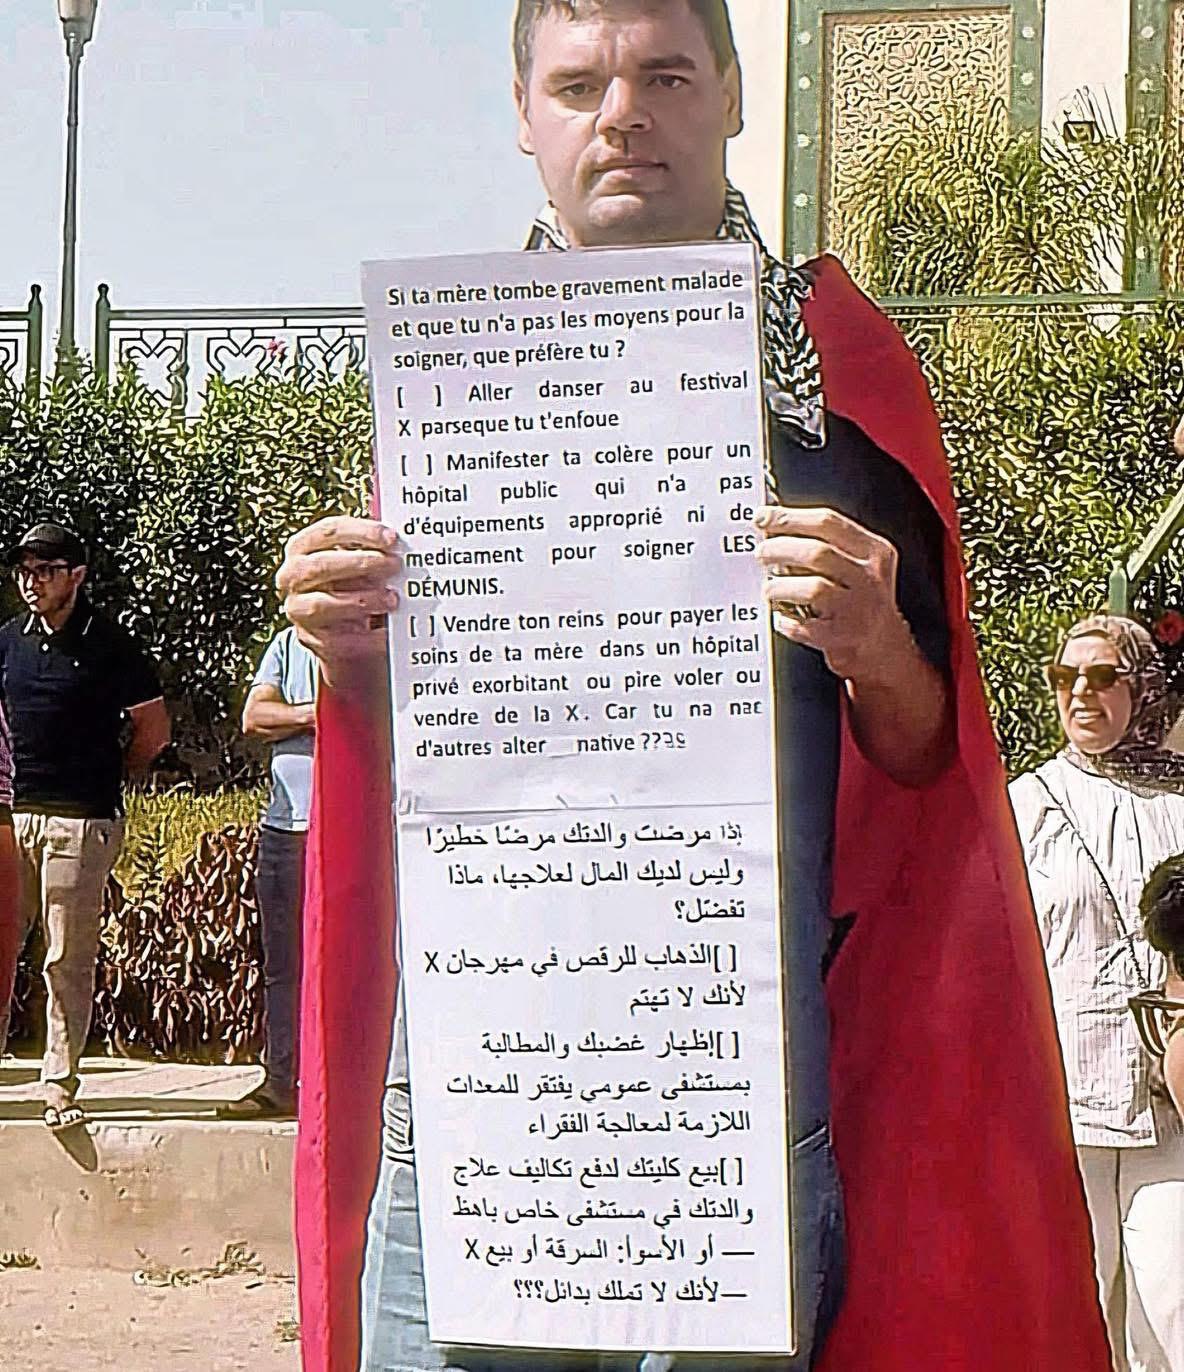 Si ta mère tombe gravement malade
et que tu n'a pas les moyens pour la
soigner, que préfère tu ?
[ ] Aller danser au festival
X parseque tu t'enfoue
[ ] Manifester ta colère pour un
hôpital public qui n'a pas
d'équipements approprié ni de
medicament pour soigner LES
DÉMUNIS.
[ ] Vendre ton reins pour payer les
soins de ta mère dans un hôpital
privé exorbitant ou pire voler ou
vendre de la X. Car tu na
d'autres alter__native ??
إذا مرضت والدتك مرضًا خطيرًا
وليس لديك المال لعلاجها، ماذا
تفضل؟
[ ]الذهاب للرقص في مهرجان X
لأنك لا تهتم
[ ]إظهار غضبك والمطالبة
بمستشفى عمومي يفتقر للمعدات
اللازمة لمعالجة الفقراء
[ ]بيع كليتك لدفع تكاليف علاج
والدتك في مستشفى خاص باهظ
— أو الأسوأ: السرقة أو بيع X
—لأنك لا تملك بدائل؟؟؟